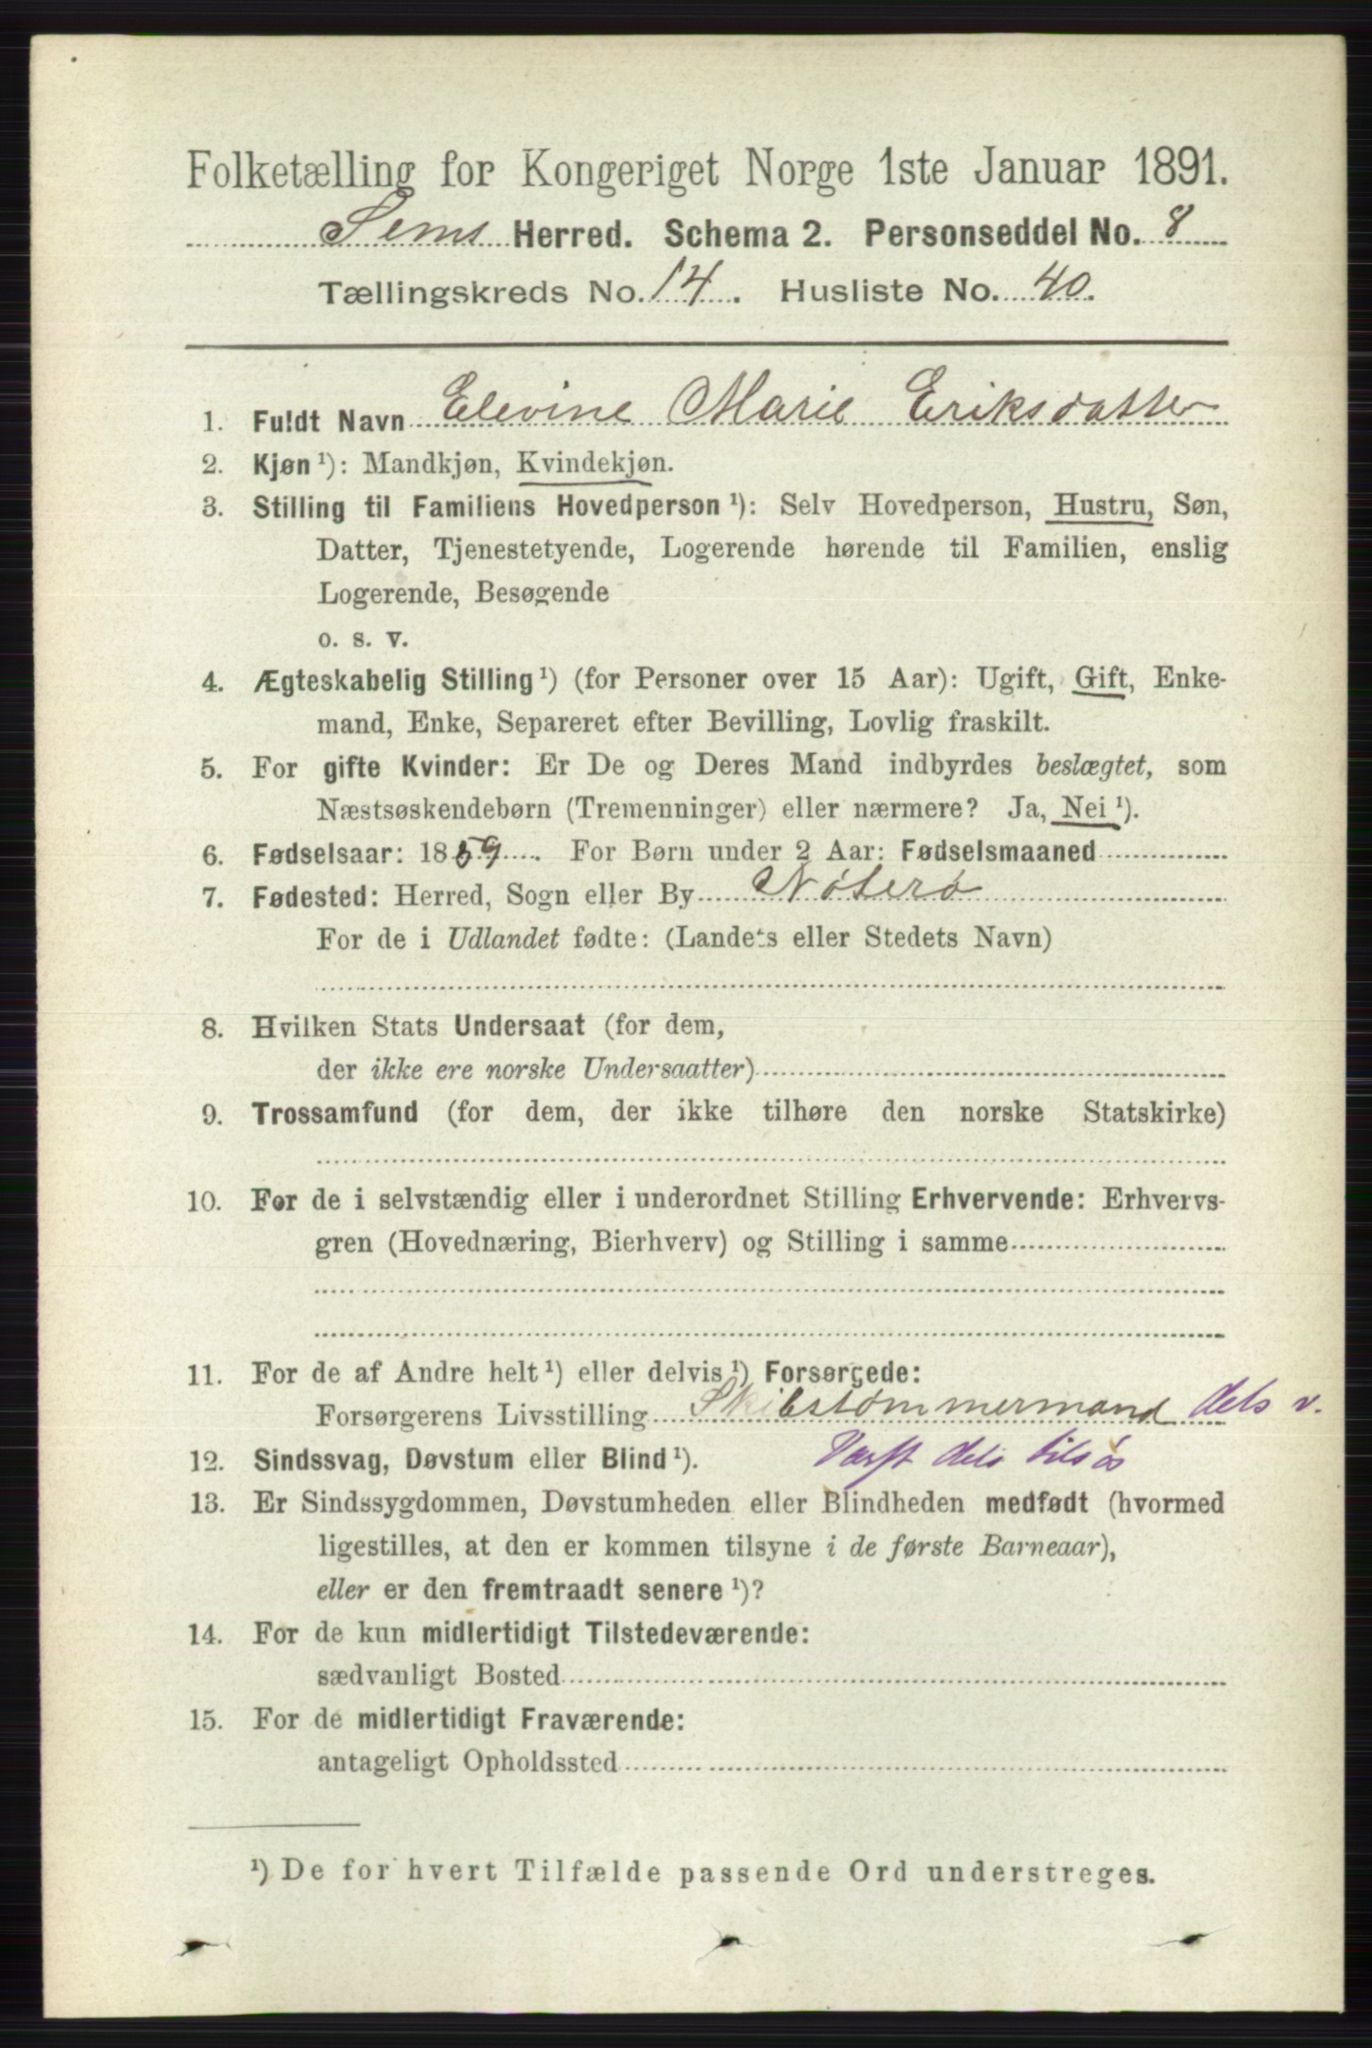 Folketælling for Kongeriget Norge 1ste Januar 1891.
Sems Herred. Schema 2. Personseddel No. 8
Tællingskreds No. 14. Husliste No. 40.
1. Fuldt Navn Elevine Marie Eriksdatter
2. Kjøn ¹): Mandkjøn, Kvindekjøn.
3. Stilling til Familiens Hovedperson ¹): Selv Hovedperson, Hustru, Søn,
Datter, Tjenestetyende, Logerende hørende til Familien, enslig
Logerende, Besøgende
o. s. v.
4. Ægteskabelig Stilling ¹) (for Personer over 15 Aar): Ugift, Gift, Enke-
mand, Enke, Separeret efter Bevilling, Lovlig fraskilt.
5. For gifte Kvinder: Er De og Deres Mand indbyrdes beslægtet, som
Næstsøskendebørn (Tremenninger) eller nærmere? Ja, Nei ¹).
6. Fødselsaar: 1859. For Børn under 2 Aar: Fødselsmaaned
7. Fødested: Herred, Sogn eller By Nøterø
For de i Udlandet fødte: (Landets eller Stedets Navn)
8. Hvilken Stats Undersaat (for dem,
der ikke ere norske Undersaatter)
9. Trossamfund (for dem, der ikke tilhøre den norske Statskirke)
10. For de i selvstændig eller i underordnet Stilling Erhvervende: Erhvervs-
gren (Hovednæring, Bierhverv) og Stilling i samme
11. For de af Andre helt ¹) eller delvis ¹) Forsørgede:
Forsørgerens Livsstilling Skibstømmermand dels v.
12. Sindssvag, Døvstum eller Blind ¹). Værft dels tilsøs
13. Er Sindssygdommen, Døvstumheden eller Blindheden medfødt (hvormed
ligestilles, at den er kommen tilsyne i de første Barneaar),
eller er den fremtraadt senere ¹)?
14. For de kun midlertidigt Tilstedeværende:
sædvanligt Bosted
15. For de midlertidigt Fraværende:
antageligt Opholdssted
¹) De for hvert Tilfælde passende Ord understreges.